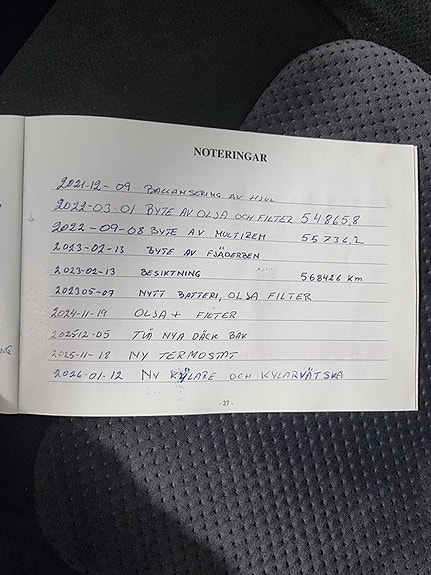 NOTERINGAR
2021-12-09 BALLANSERING AV HJUL
2022-03-01 BYTE AV OLJA OCH FILTER 54865,8
2022-09-08 BYTE AV MULTIREM 55736,2
2023-02-13 BYTE AV FJÄDERBEN
2023-02-13 BESIKTNING 568426 km
202305-07 NYTT BATTERI, OLJA FILTER
2024-11-19 OLJA + FILTER
202512-05 TVÅ NYA DÄCK BAK
2025-11-18 NY TERMOSTAT
2026-01-12 NY KYLARE OCH KYLARVÄTSKA
-27-